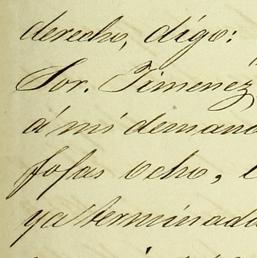 derecho, digo:
Sor. Jimenez
á mi demand
fojas ocho,
ya terminad